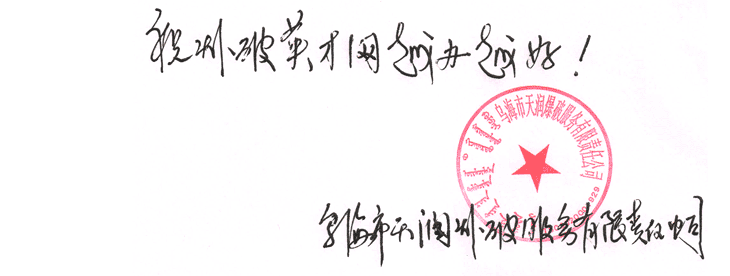 祝爆破英才网越办越好！
乌海市天润爆破服务有限责任公司
乌海市天润爆破服务有限责任公司